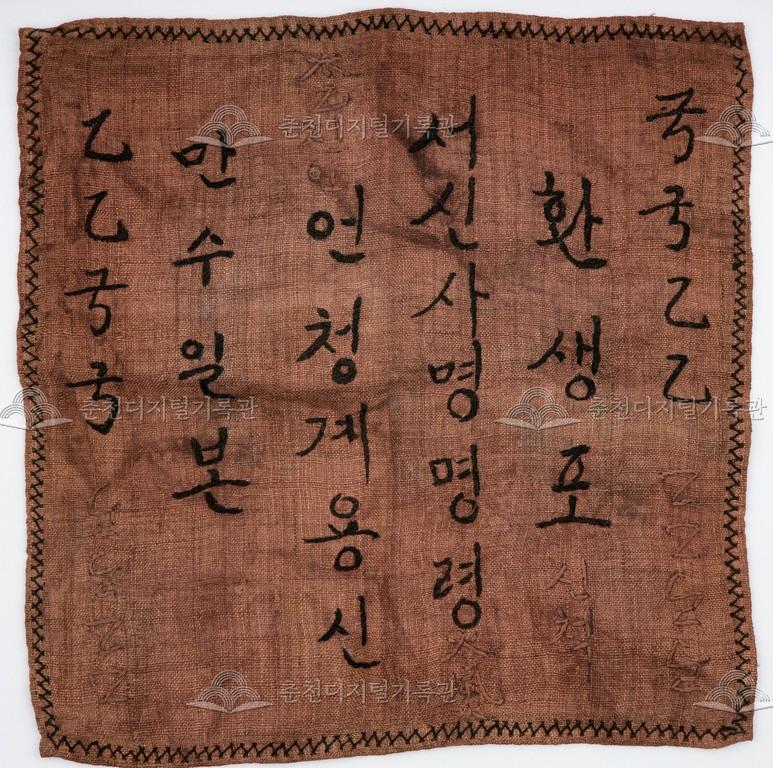 국국乙乙
환생포
서신사명명령
언청계용신
만수일본
乙乙국국
춘천디지털기록관
춘천디지털기록관
춘천디지털기록관
춘천디지털기록관